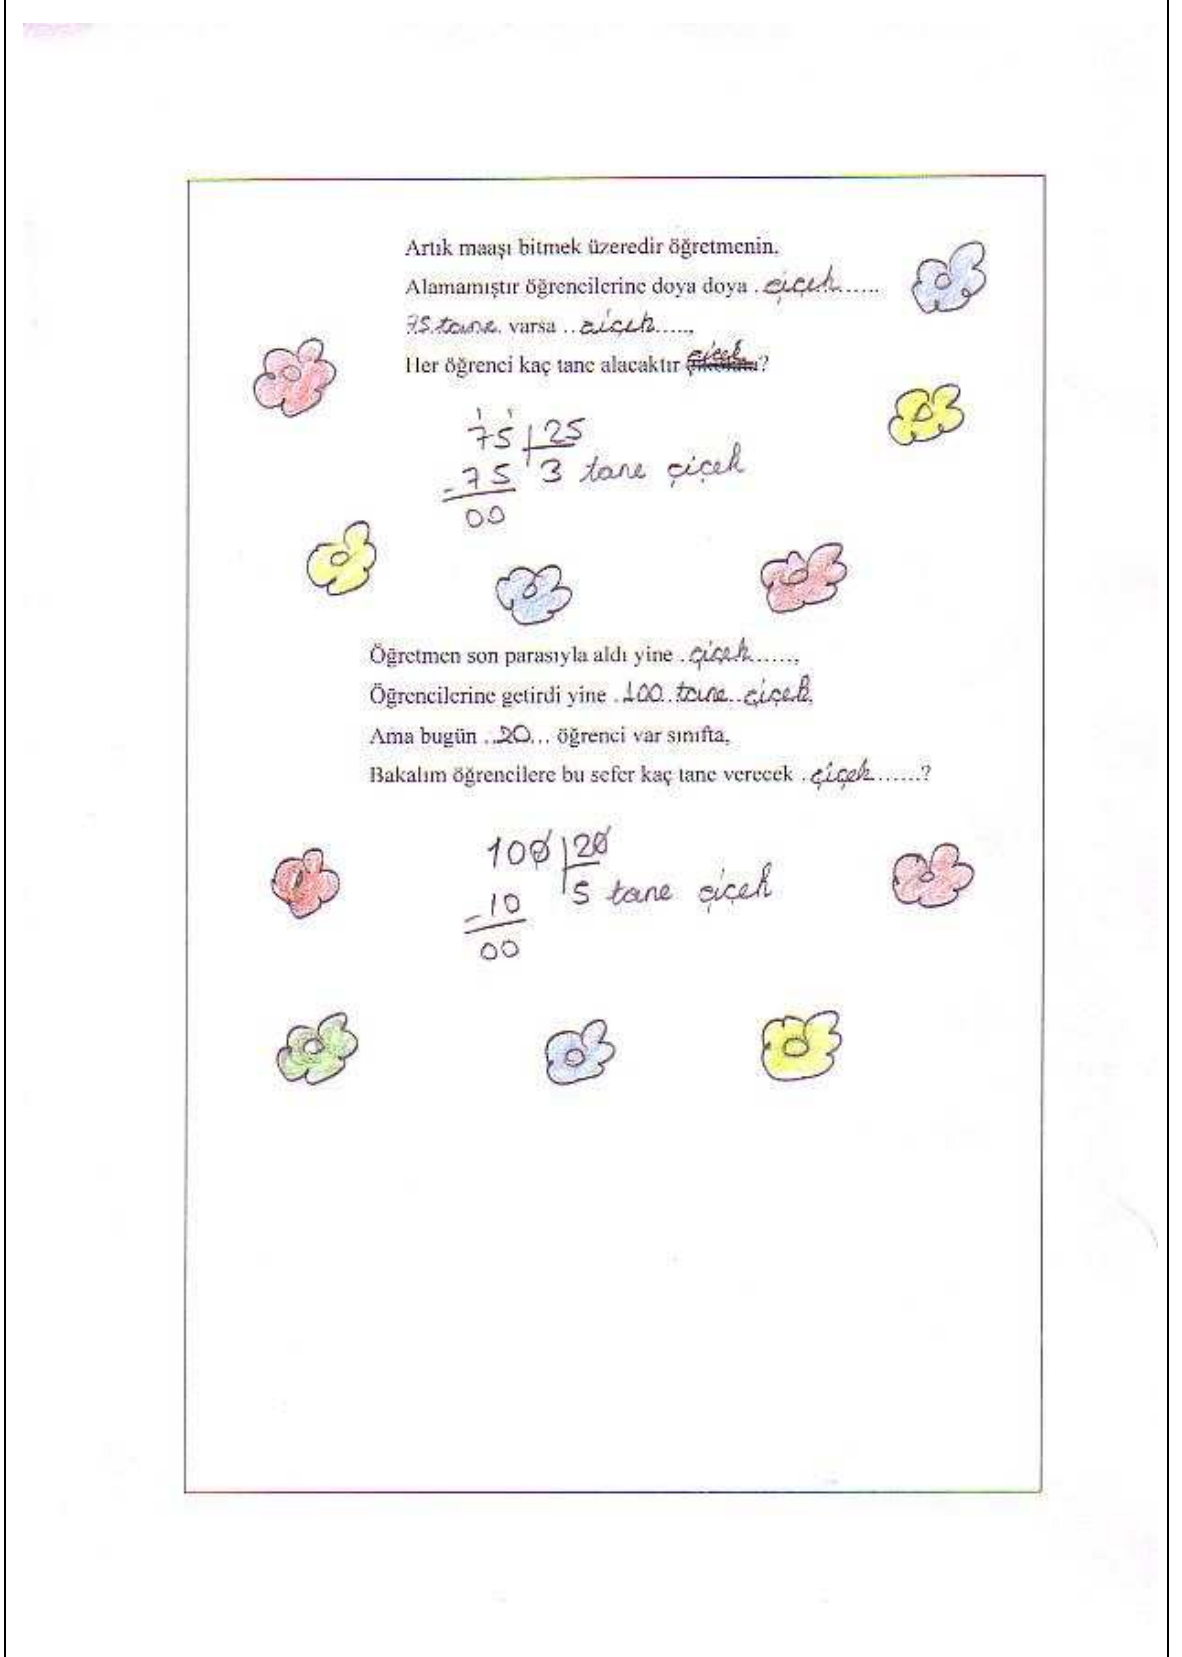 Artık maaşı bitmek üzeredir öğretmenin.
Alamamıştır öğrencilerine doya doya . çiçek ......
75 tane. varsa .. çiçek .....,
Her öğrenci kaç tane alacaktır çiçek?
75 | 25
- 75 3 tane çiçek
00
Öğretmen son parasıyla aldı yine . çiçek ......,
Öğrencilerine getirdi yine . 100 .. tane .. çiçek.
Ama bugün .. 20 ... öğrenci var sınıfta,
Bakalım öğrencilere bu sefer kaç tane verecek . çiçek ......?
100 | 20
- 10 5 tane çiçek
00